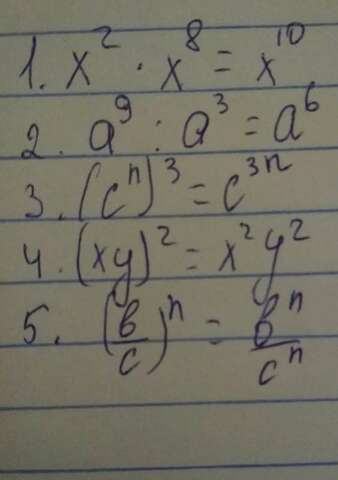 1. x² · x⁸ = x¹⁰
2. a⁹ : a³ = a⁶
3. (cⁿ)³ = c³ⁿ
4. (xy)² = x²y²
5. (в/c)ⁿ = вⁿ/cⁿ